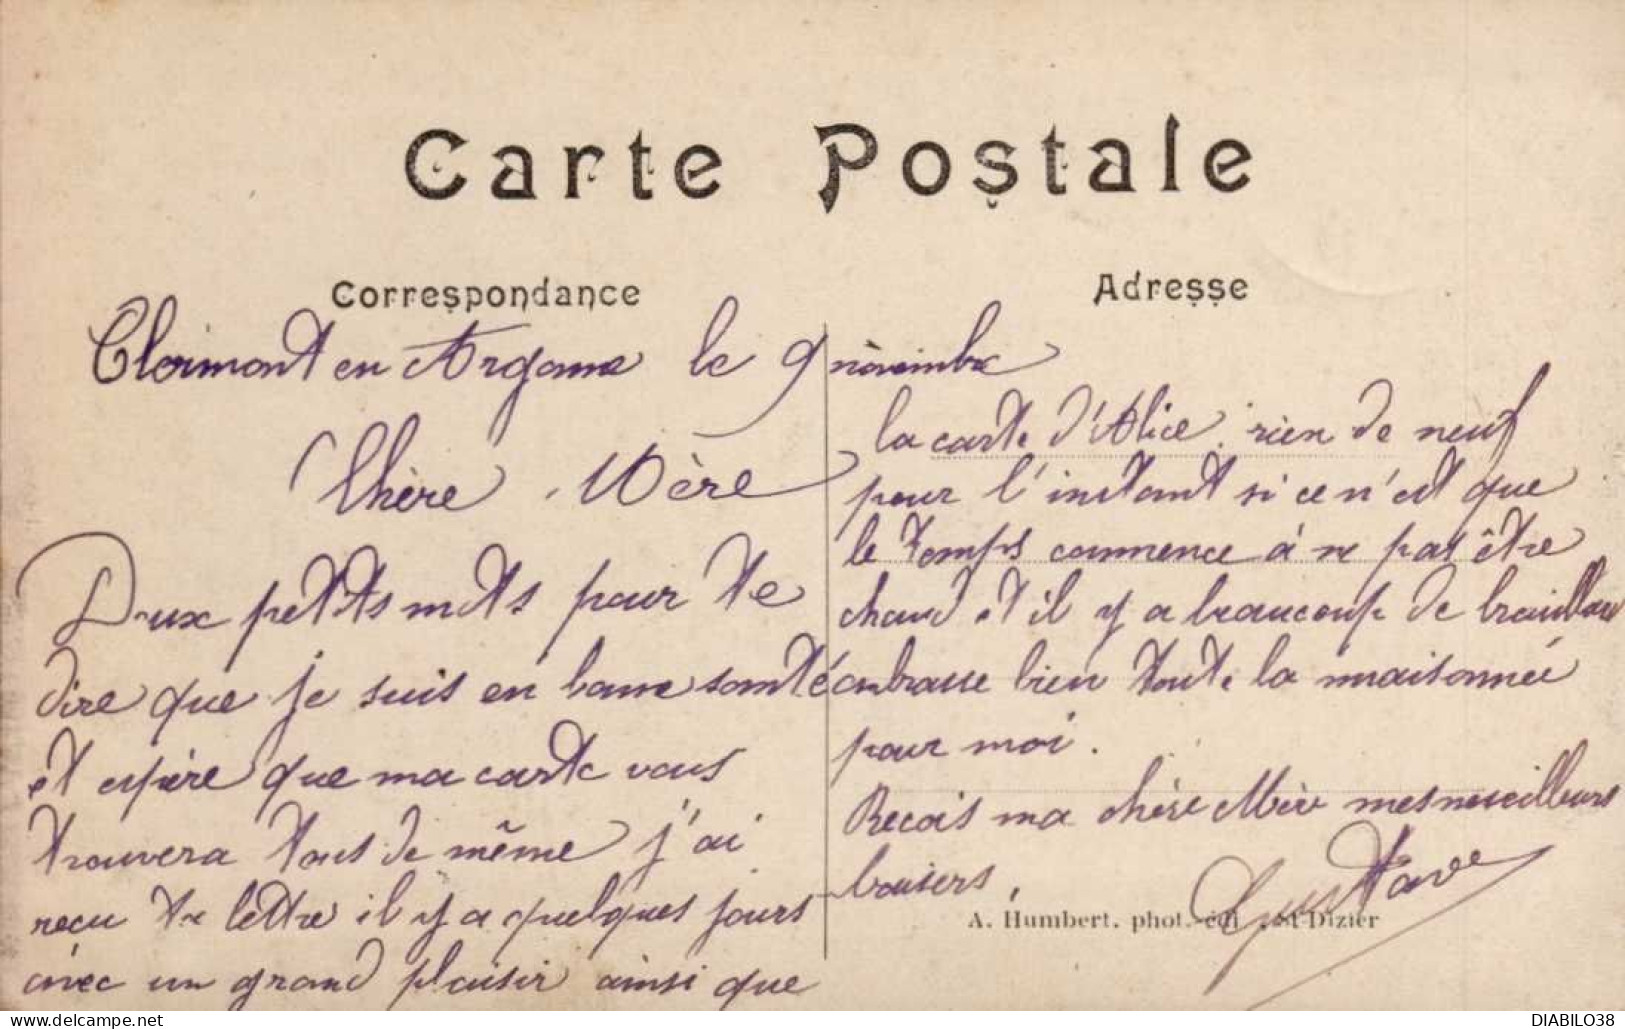 Carte Postale
Correspondance
Adresse
Clermont en Argonne le 9 novembre
Chère Mère
Deux petits mots pour te
dire que je suis en bonne santé
et espère que ma carte vous
trouvera tous de même j'ai
reçu ta lettre il y a quelques jours
avec un grand plaisir ainsi que
la carte d'Alice. rien de neuf
pour l'instant si ce n'est que
le temps commence à ne pas être
chaud et il y a beaucoup de brouillard
embrasse bien toute la maisonnée
pour moi.
Reçois ma chère Mère mes meilleurs
baisers,
Gustave
A. Humbert, phot.-édit., St-Dizier
DIABILO38